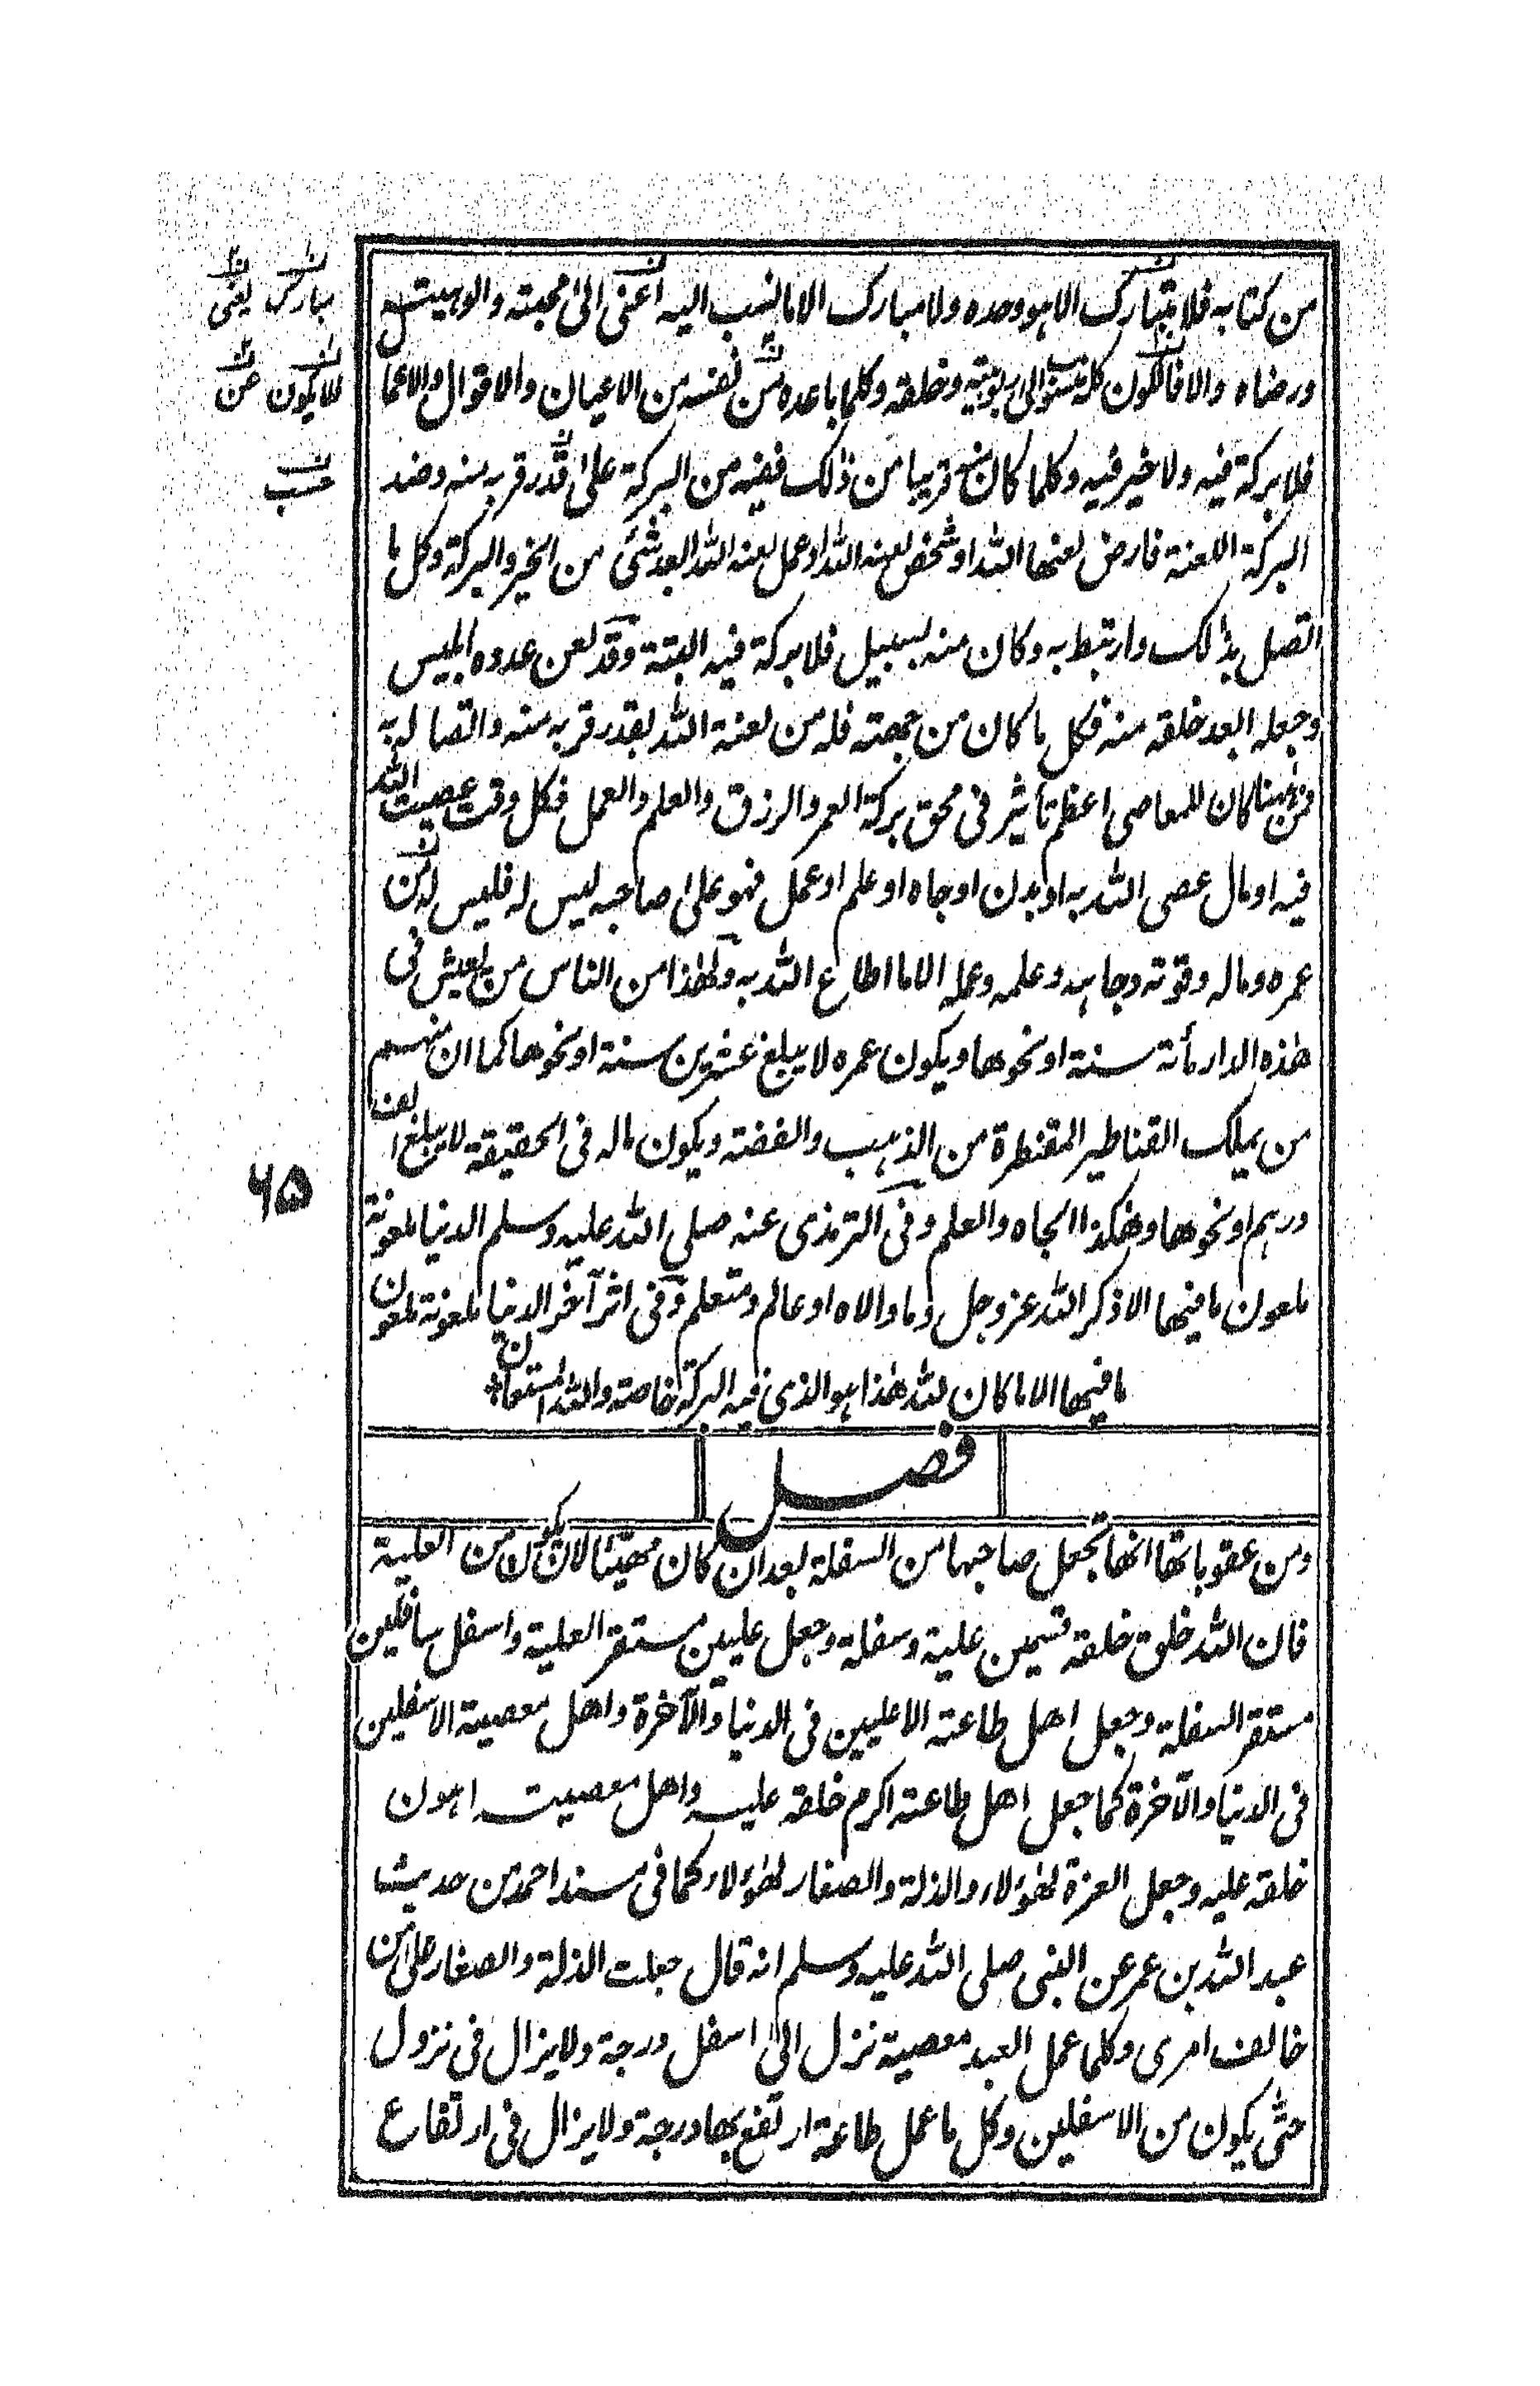 من كتابه فلا متبارك الا هو وحده ولا مبارك الا ما نسب اليه اعنى الى محبته والوهيته
ورضاه والا فالكون كله منسوب الى ربوبيته وخلقه وكلما باعده من نفسه من الاعيان والاقوال والاعما
فلا بركة فيه ولا خير فيه وكلما كان قريبا من ذلك ففيه من البركة على قدر قربه منه وضد
البركة اللعنة فارض لعنها الله او شخص لعنه الله او عمل لعنه الله ابعد شئ من الخير والبركة وكل ما
اتصل بذلك وارتبط به وكان منه بسبيل فلا بركة فيه البتة وقد لعن عدوه ابليس
وجعله ابعد خلقه منه فكل ما كان من جهته فله من لعنة الله بقدر قربه منه واتصاله به
فمن ههنا كان للمعاصى اعظم تأثير فى محق بركة العمر والرزق والعلم والعمل فكل وقت عصيت الله
فيه او مال عصى الله به او بدن او جاه او علم او عمل فهو على صاحبه ليس له فليس له من
عمره وماله وقوته وجاهه وعلمه وعمله الا ما اطاع الله به ولهذا من الناس من يعيش فى
هذه الدار مأئة سنة او نحوها ويكون عمره لا يبلغ عشرين سنة او نحوها كما ان منهم
من يملك القناطير المقنطرة من الذهب والفضة ويكون ماله فى الحقيقة لا يبلغ الف
درهم او نحوها وهكذا الجاه والعلم وفى الترمذى عنه صلى الله عليه وسلم الدنيا ملعونة
ملعون ما فيها الا ذكر الله عز وجل وما والاه او عالم ومتعلم وفى اثر آخر الدنيا ملعونة ملعون
ما فيها الا ما كان لله هذا هو الذى فيه البركة خاصة والله المستعان
فصل
ومن عقوباتها انها تجعل صاحبها من السفلة بعد ان كان مهيئا لان يكون من العلية
فان الله خلق خلقه قسمين علية وسفلة وجعل عليين مستقر العلية واسفل سافلين
مستقر السفلة وجعل اهل طاعته الاعليين فى الدنيا والآخرة واهل معصيته الاسفلين
فى الدنيا والآخرة كما جعل اهل طاعته اكرم خلقه عليه واهل معصيته اهون
خلقه عليه وجعل العزة لهؤلاء والذلة والصغار لهؤلاء كما فى مسند احمد من حديث
عبد الله بن عمر عن النبى صلى الله عليه وسلم انه قال جعلت الذلة والصغار على من
خالف امرى وكلما عمل العبد معصية نزل الى اسفل درجة ولا يزال فى نزول
حتى يكون من الاسفلين وكل ما عمل طاعة ارتفع بها درجة ولا يزال فى ارتفاع
مبارك يعنى
للايكون عن
۶۵